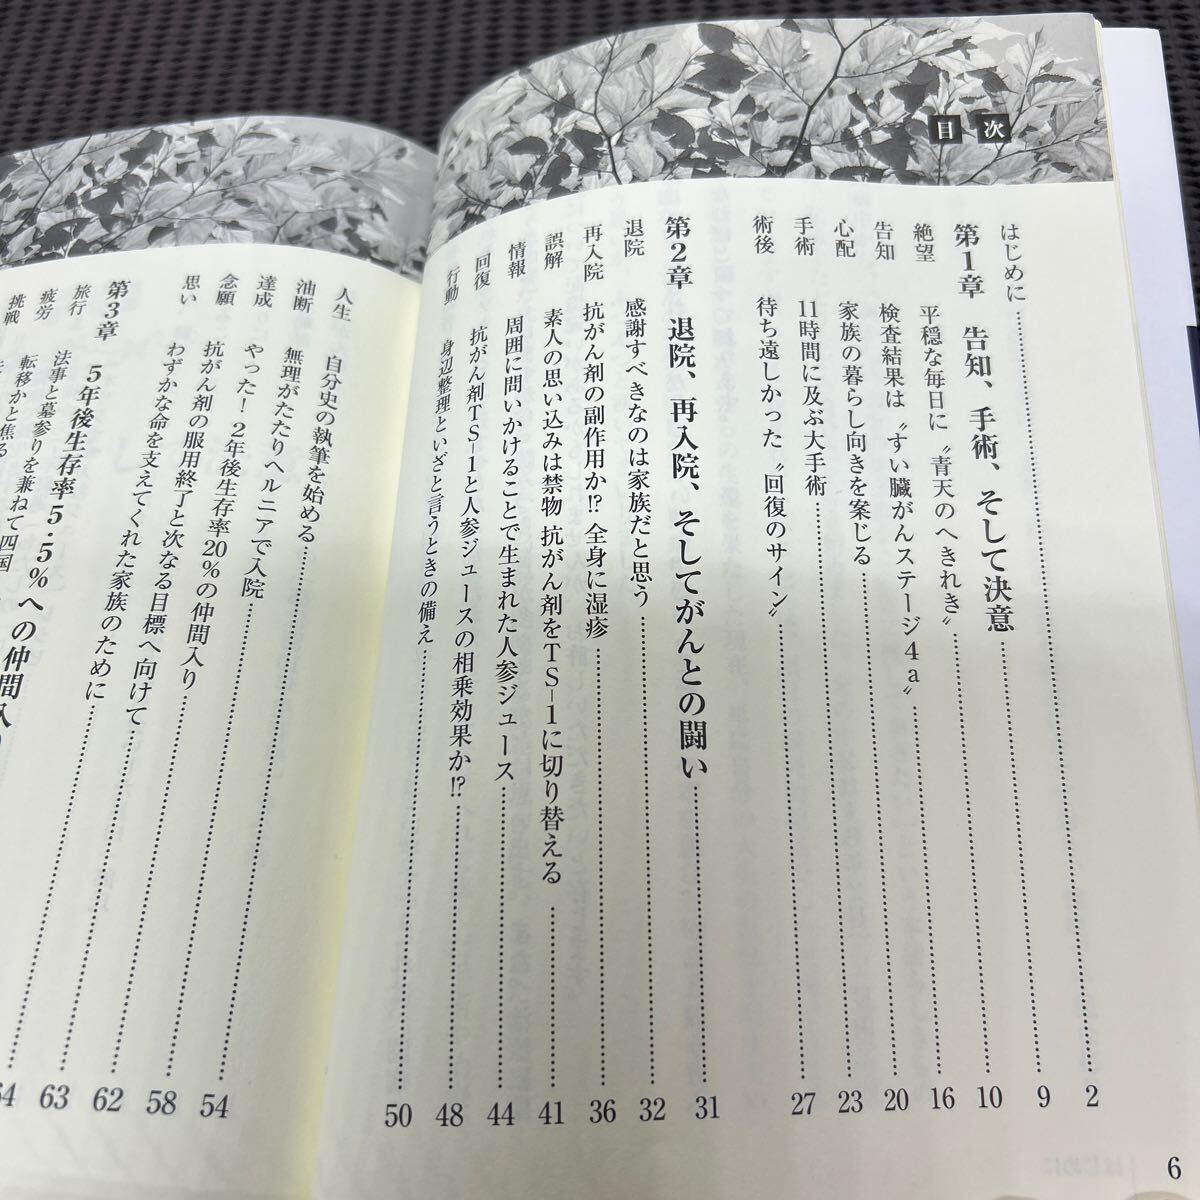 目次
はじめに……2
第1章 告知、手術、そして決意……9
絶望 平穏な毎日に〝青天のへきれき〟……10
告知 検査結果は〝すい臓がんステージ4a〟……16
心配 家族の暮らし向きを案じる……20
手術 11時間に及ぶ大手術……23
術後 待ち遠しかった〝回復のサイン〟……27
第2章 退院、再入院、そしてがんとの闘い……31
退院 感謝すべきなのは家族だと思う……32
再入院 抗がん剤の副作用か!? 全身に湿疹……36
誤解 素人の思い込みは禁物 抗がん剤をTS-1に切り替える……41
情報 周囲に問いかけることで生まれた人参ジュース……44
回復 抗がん剤TS-1と人参ジュースの相乗効果か!?……48
行動 身辺整理といざと言うときの備え……50
6
人生 自分史の執筆を始める
油断 無理がたたりヘルニアで入院……54
達成 やった!2年後生存率20%の仲間入り……58
念願 抗がん剤の服用終了と次なる目標へ向けて……62
思い わずかな命を支えてくれた家族のために……63
第3章 5年後生存率5.5%への仲間入り
旅行 法事と墓参りを兼ねて四国
疲労 転移かと焦る
挑戦